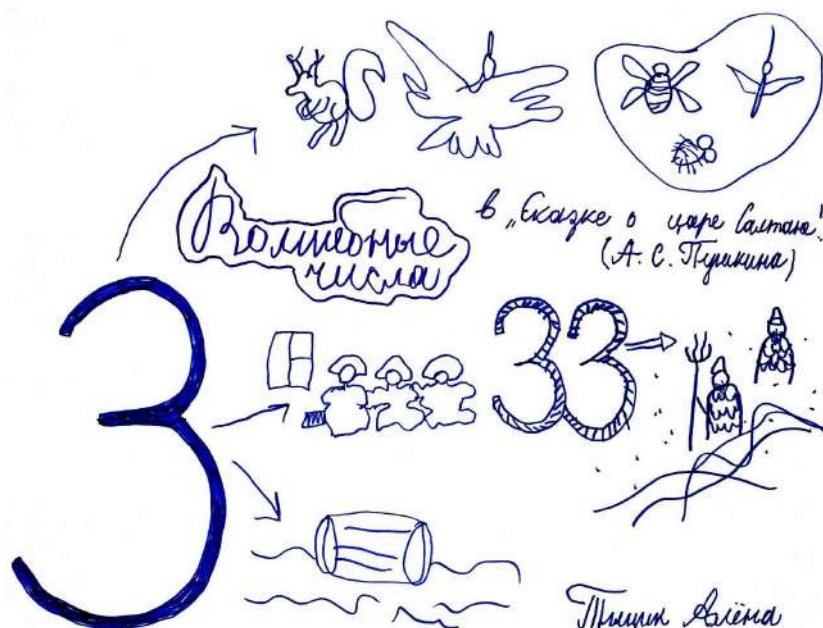 Волшебные
числа
в „Сказке о царе Салтане"
(А. С. Пушкина)
3
33
Алёна